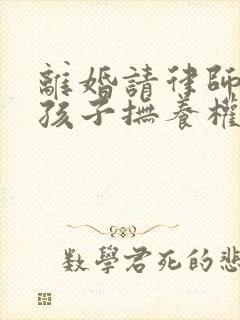 離婚請律師
孩子撫養權
數學君死的悲